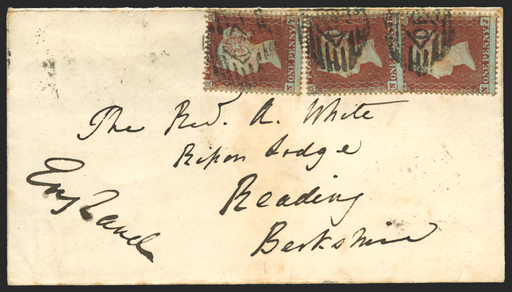 ONE PENNY
ONE PENNY
ONE PENNY
The Revd. A. White
Ripon Lodge
Reading
Berkshire
England